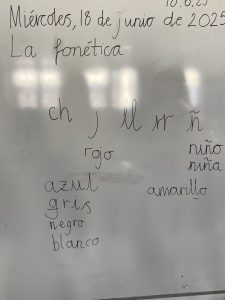 18.6.25
Miércoles, 18 de junio de 2025
La fonética
ch j ll rr ñ
rojo
niño
niña
azul
amarillo
gris
negro
blanco